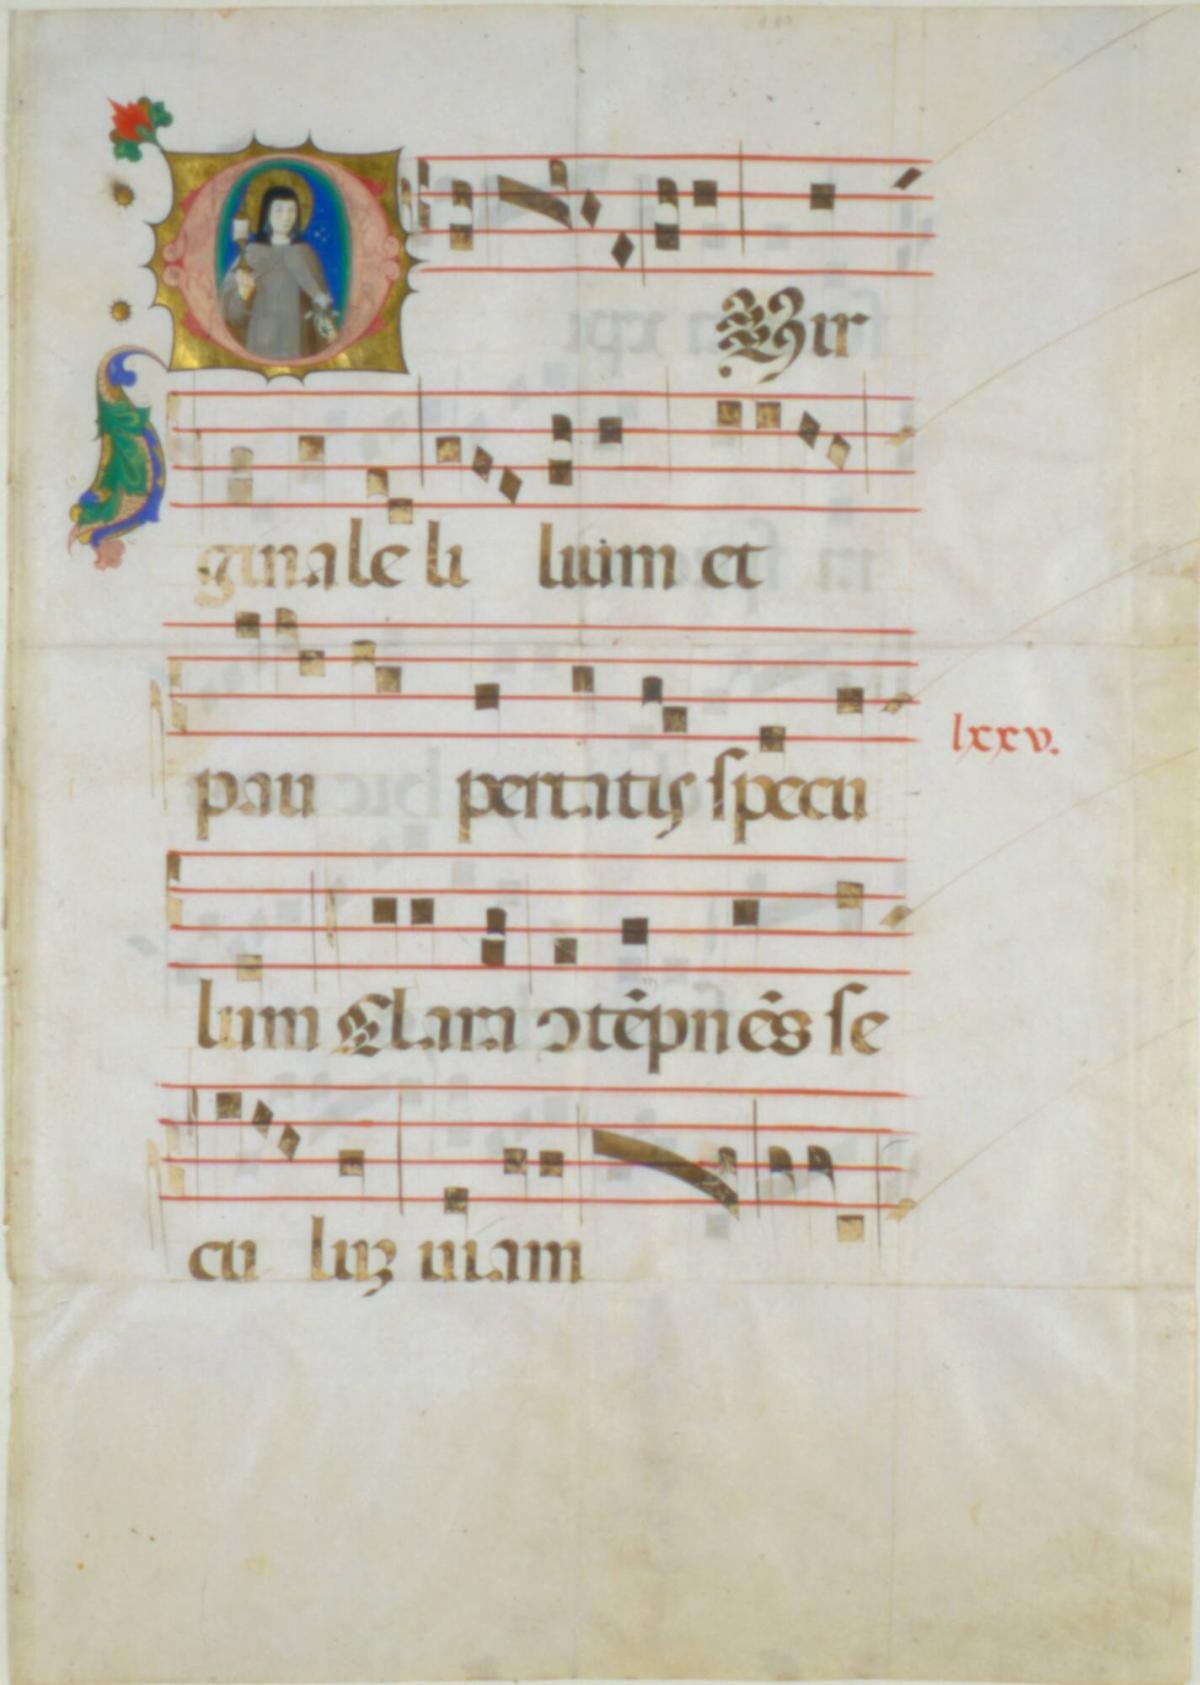 O Vir
ginale li lium et
pau pertatis specu
lxxv.
lum Clara ɔtēpnēs se
cu luʒ uiam